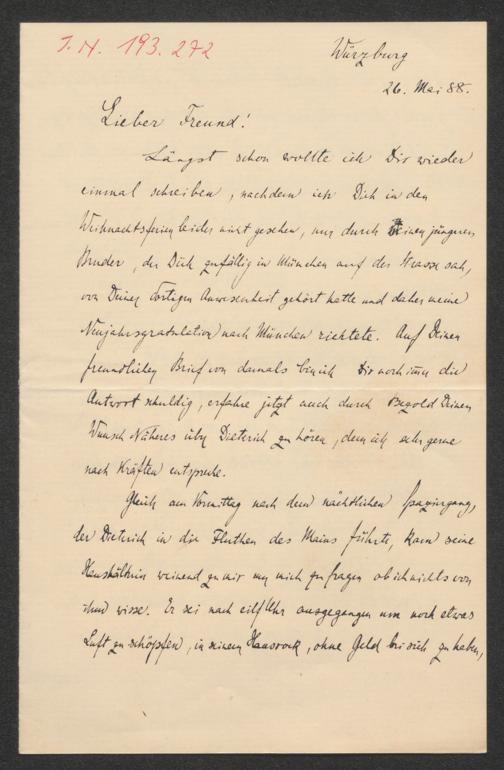 I. N. 193.272
Würzburg
26. Mai 88.
Lieber Freund!
Längst schon wollte ich Dir wieder
einmal schreiben, nachdem ich Dich in den
Weihnachtsferien leider nicht gesehen, nur durch meinen jüngeren
Bruder, der Dich zufällig in München auf der Strasse sah,
von Deiner dortigen Anwesenheit gehört hatte und daher meine
Neujahrsgratulation nach München richtete. Auf Deinen
freundlichen Brief von damals bin ich Dir noch imm die
Antwort schuldig, erfahre jetzt auch durch Bezold Deinen
Wunsch Näheres über Dieterich zu hören, dem ich sehr gerne
nach Kräften entspreche.
Gleich am Vormittag nach dem nächtlichen Spaziergang,
der Dieterich in die Fluthen des Mains führte, kam seine
Haushälterin weinend zu mir um mich zu fragen ob ich nichts von
ihm wisse. Er sei nach eilf Uhr ausgegangen um noch etwas
Luft zu schöpfen, in seinem Hausrock, ohne Geld bei sich zu haben,